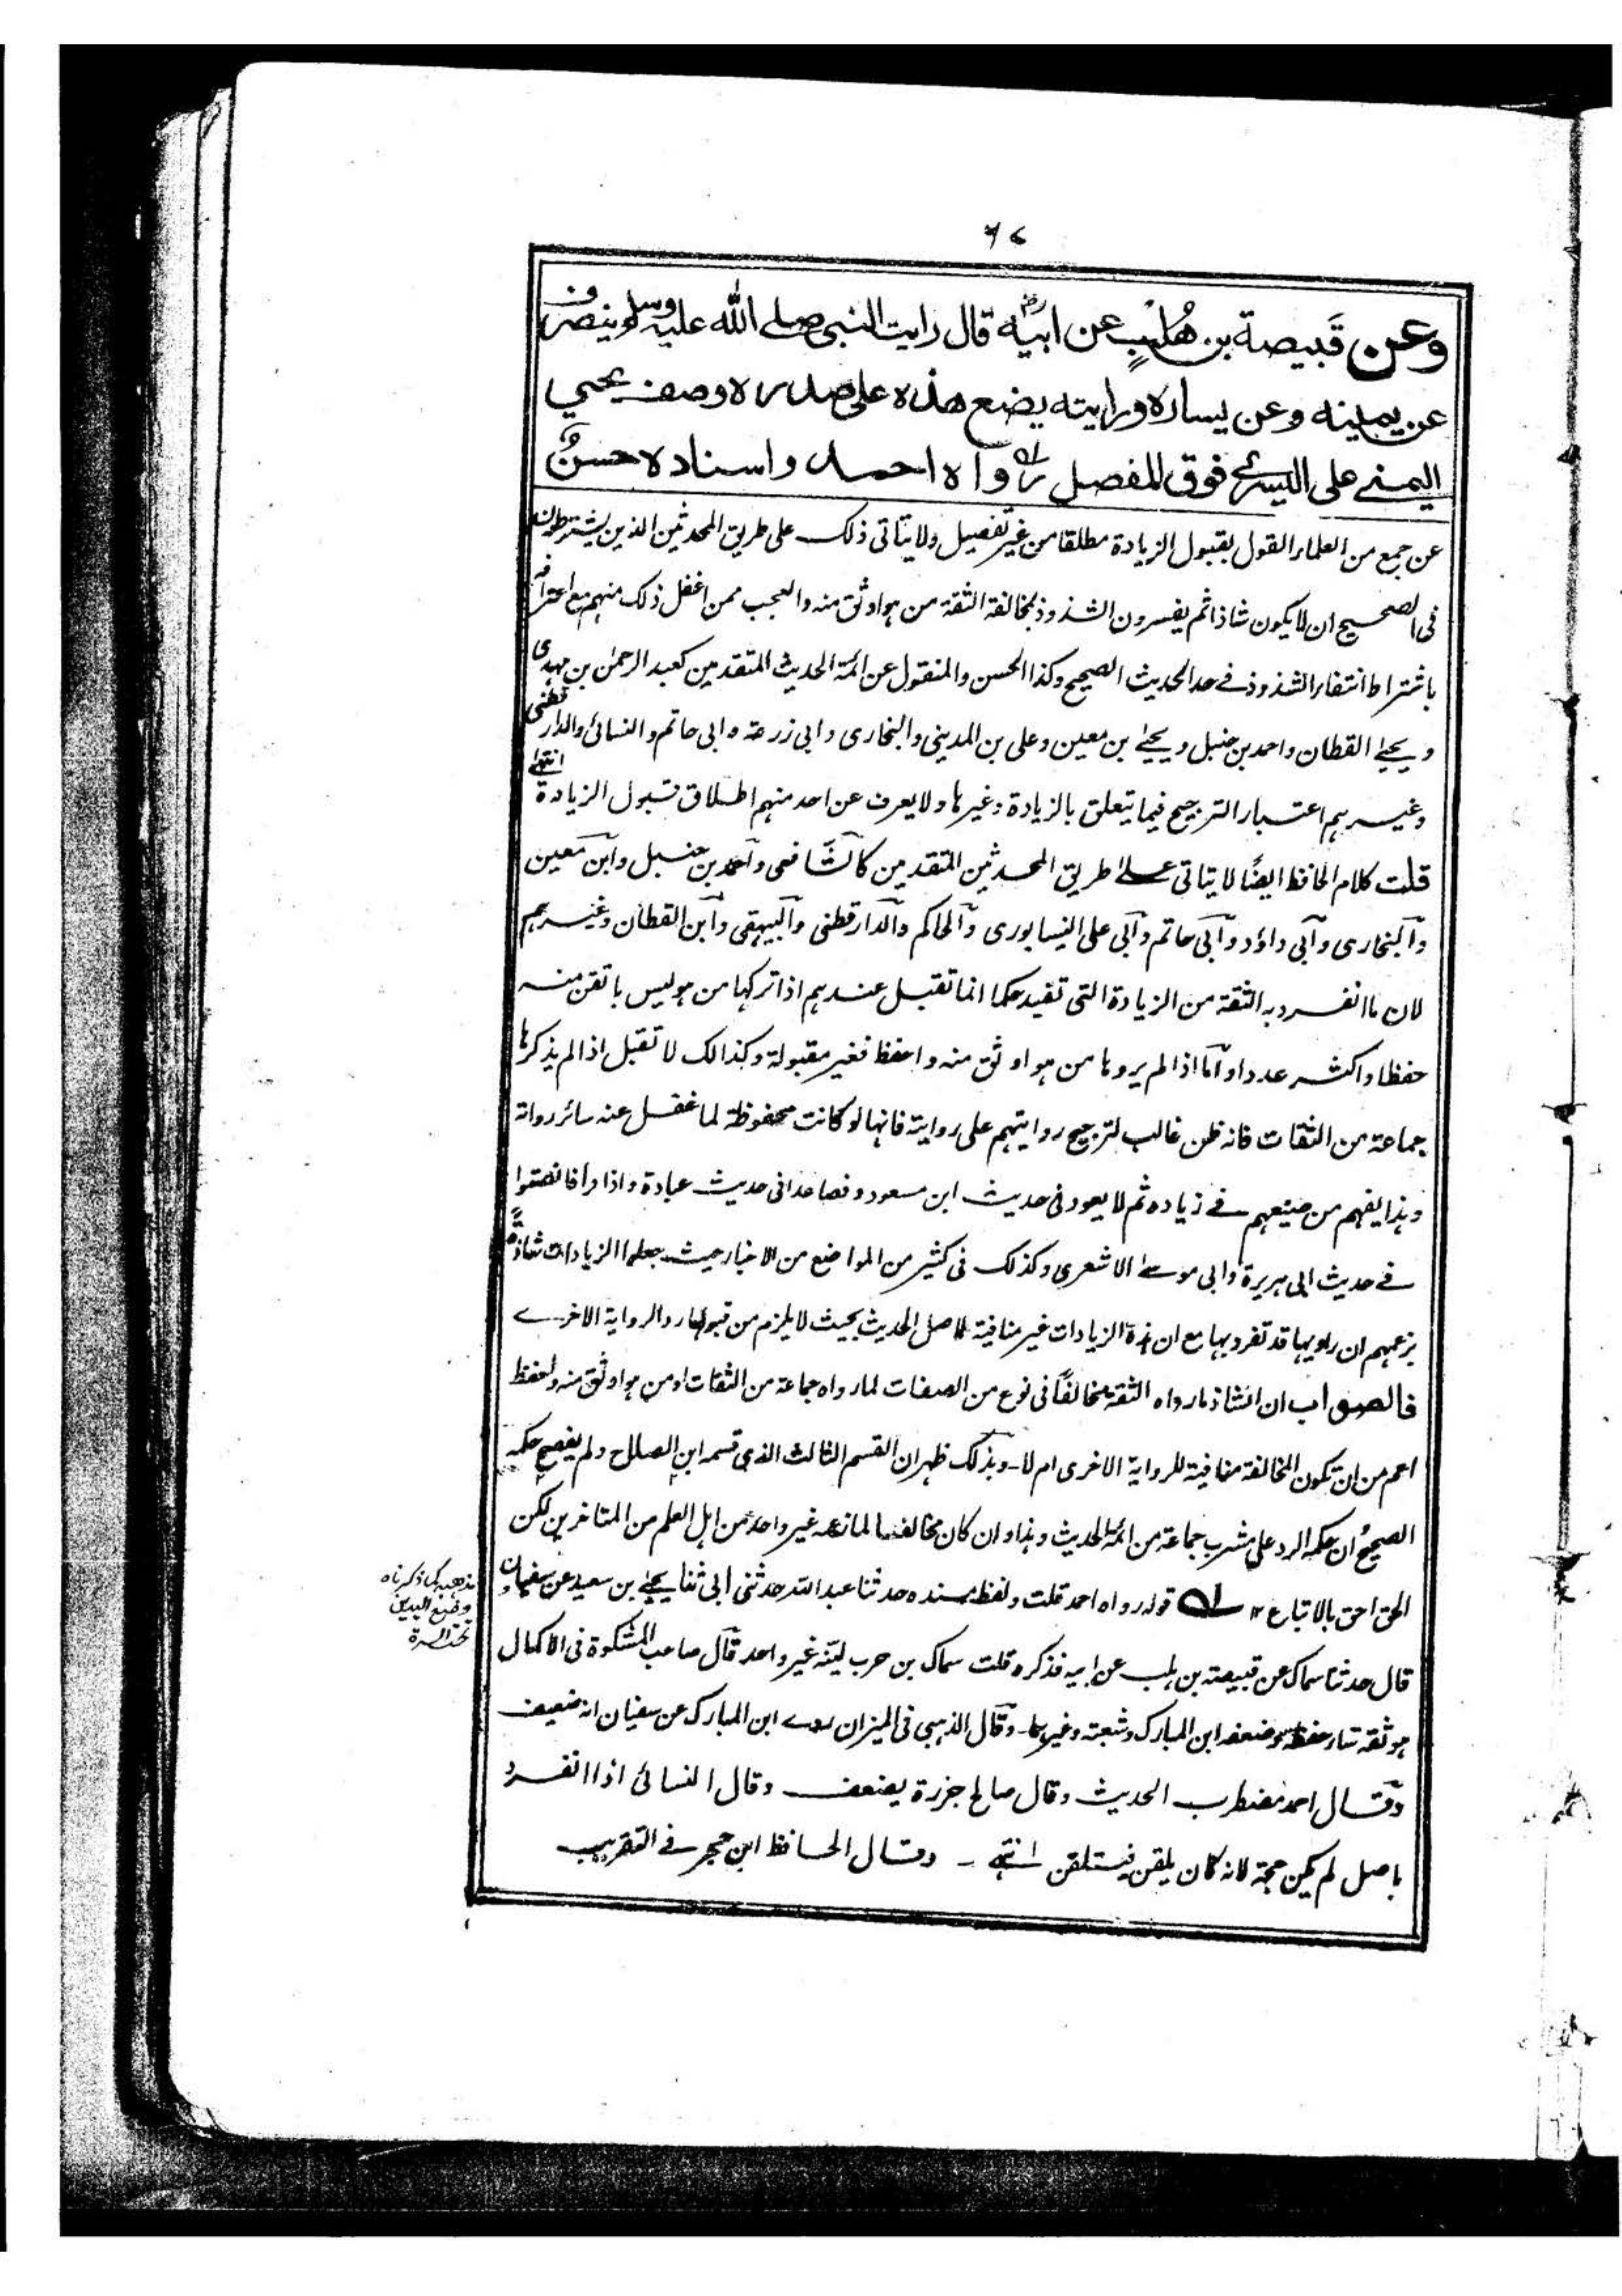 ٦٧
وعن قَبيصة بن هُلْبٍ عن ابيه رض قال رايت النبي صلى الله عليه وسلم ينصرف
عن يمينه وعن يساره ورايته يضع هذه على صدره وصف يحيى
اليمنى على اليسرى فوق المفصل رواه احمد واسناده حسنٌ
عن جمع من العلماء القول بقبول الزيادة مطلقا من غير تفصيل ولا يتاتى ذلك على طريق المحدثين الذين يشترطون
فى الصحيح ان لا يكون شاذا ثم يفسرون الشذوذ بمخالفة الثقة من هو اوثق منه والعجب ممن اغفل ذلك منهم مع اعترافه
باشتراط انتفاء الشذوذ فے حد الحديث الصحيح وكذا الحسن والمنقول عن ائمة الحديث المتقدمين كعبد الرحمن بن مهدى
ويحيےٰ القطان واحمد بن حنبل ويحيےٰ بن معين وعلى بن المدينى والبخارى وابى زرعة وابى حاتم والنسائى والدارقطنى
وغيرهم اعتبار الترجيح فيما يتعلق بالزيادة وغيرها ولا يعرف عن احد منهم اطلاق قبول الزيادة انتهےٰ
قلت كلام الحافظ ايضًا لا يتاتى علےٰ طريق المحدثين المتقدمين كالشافعى واحمد بن حنبل وابن معين
والبخارى وابى داؤد وابى حاتم وابى على النيسابورى والحاكم والدارقطنى والبيهقى وابن القطان وغيرهم
لان ما انفرد به الثقة من الزيادة التى تفيد حكما انما تقبل عندهم اذا تركها من هو ليس باتقن منه
حفظا و اكثر عددا واما اذا لم يروها من هو اوثق منه واحفظ فغير مقبولة وكذالك لا تقبل اذا لم يذكرها
جماعة من الثقات فانه ظن غالب لترجيح روايتهم على روايته فانها لو كانت محفوظة لما غفل عنه سائر رواته
وهذا يفهم من صنيعهم فے زيادة ثم لا يعود فى حديث ابن مسعود و فصاعدا فى حديث عبادة واذا قرأ فانصتوا
فے حديث ابى هريرة وابى موسےٰ الاشعرى وكذلك فى كثير من المواضع من الاخبار حيث جعلوا الزيادات شاذةً
بزعمهم ان راويها قد تفرد بها مع ان هذه الزيادات غير منافية لاصل الحديث بحيث لا يلزم من قبولها رد الرواية الاخرے
فالصواب ان الشاذ ما رواه الثقة مخالفًا فى نوع من الصفات لما رواه جماعة من الثقات او من هو اوثق منه واحفظ
اعم من ان تكون المخالفة منافية للرواية الاخرى ام لا۔ وبذلك ظهر ان القسم الثالث الذى قسمه ابن الصلاح ولم يفصح حكمه
الصحيح ان حكمه الرد على مشرب جماعة من ائمة الحديث وهذا وان كان مخالفا لما زعمه غير واحد من اهل العلم من المتاخرين لكن
الحق احق بالاتباع ١٢ ؎ قوله رواه احمد قلت ولفظ مسنده حدثنا عبد الله حدثنى ابى ثنا يحيےٰ بن سعيد عن سفيان
قال حدثنا سماك عن قبيصة بن هلب عن ابيه فذكره قلت سماك بن حرب لينه غير واحد قال صاحب المشكوة فى الاكمال
هو ثقة ساء حفظه وضعفه ابن المبارك وشعبة وغيرهما۔ وقال الذهبى فى الميزان روے ابن المبارك عن سفيان انه ضعيف
وقال احمد مضطرب الحديث وقال صالح جزرة يضعف وقال النسائى اذا انفرد
باصل لم يكن حجة لانه كان يلقن فيتلقن انتهےٰ ۔ وقال الحافظ ابن حجر فے التقريب
مذهبه كما ذكرناه
وضع اليدين
تحت السرة